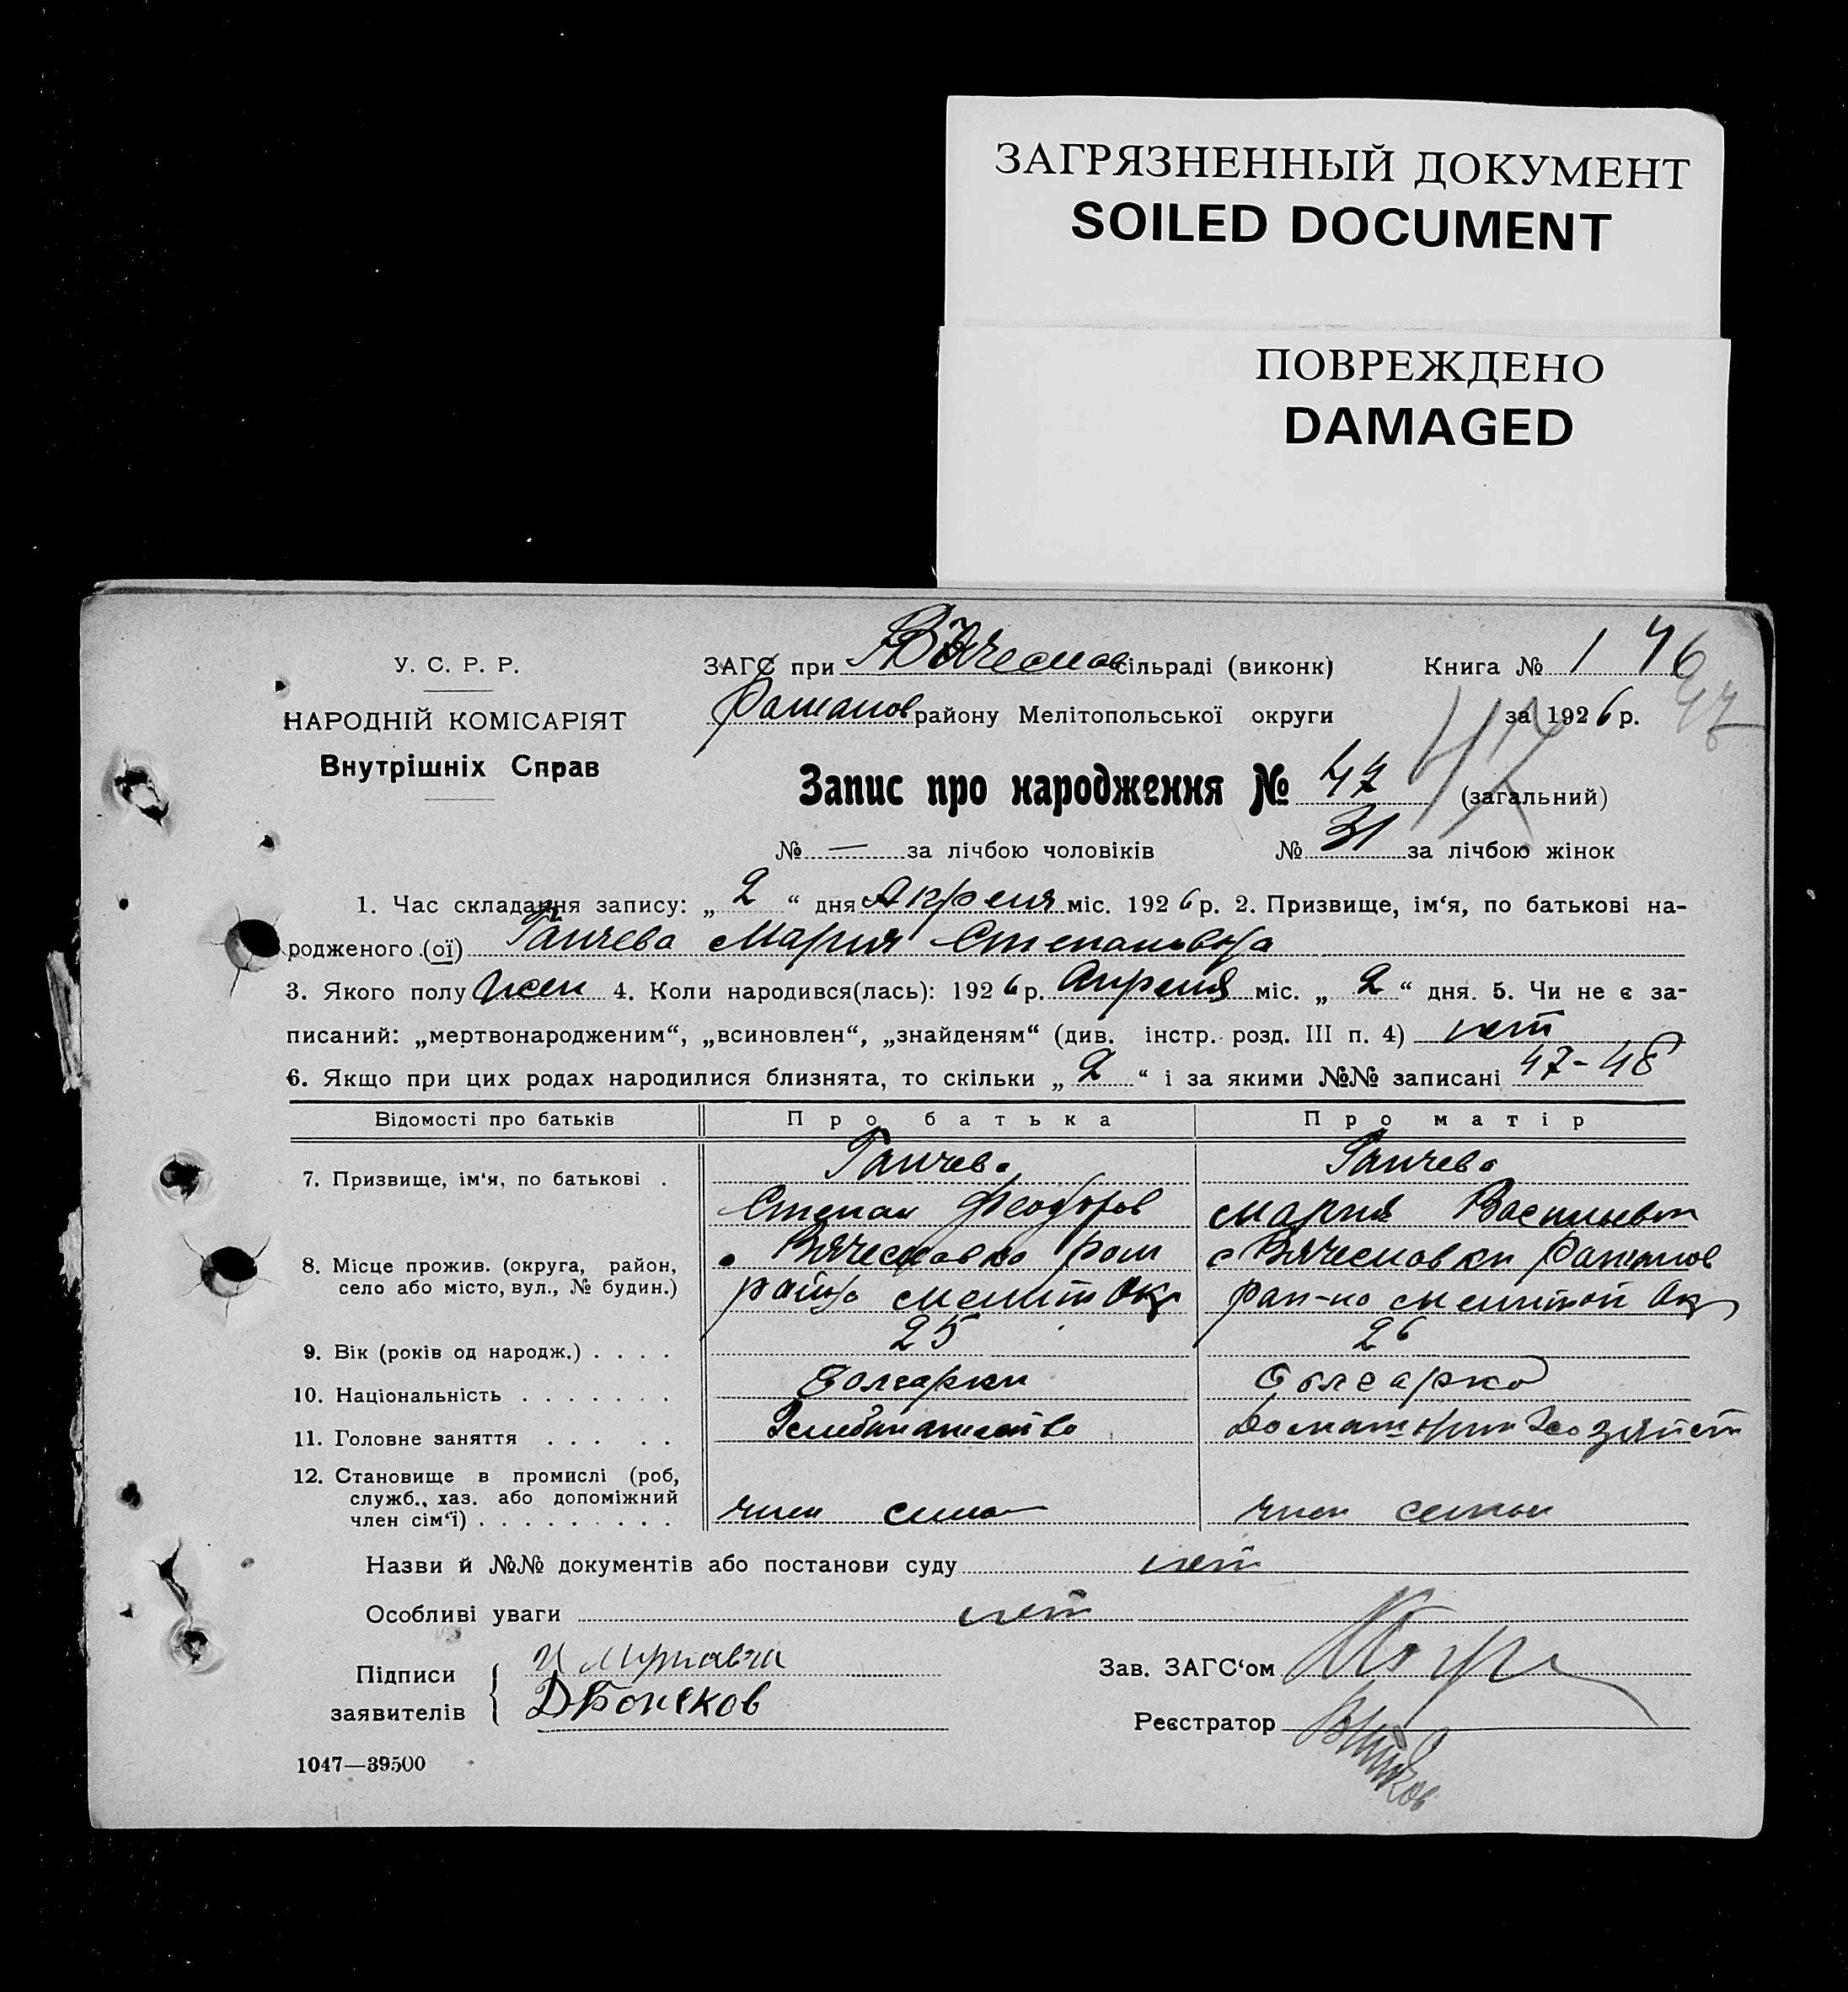 ЗАГРЯЗНЕННЫЙ ДОКУМЕНТ
SOILED DOCUMENT
ПОВРЕЖДЕНО
DAMAGED
У. С. Р. Р.
НАРОДНІЙ КОМІСАРІЯТ
Внутрішніх Справ
ЗАГС при Вячеслов сільраді (виконк)
Книга № 1 46
47
Раманов району Мелітопольської округи
за 1926 р.
Запис про народження № 47 (загальний)
47
№ — за лічбою чоловіків № 31 за лічбою жінок
1. Час складання запису: „ 2 “ дня Апреля міс. 1926 р. 2. Призвище, ім‘я, по батькові на-
родженого (ої) Ганчева Мария Степановна
3. Якого полу жен 4. Коли народився(лась): 1926 р. Апреля міс. „ 2 “ дня. 5. Чи не є за-
писаний: „мертвонародженим“, „всиновлен“, „знайденям“ (див. інстр. розд. III п. 4) нет
6. Якщо при цих родах народилися близнята, то скільки „ 2 “ і за якими №№ записані 47-48
Відомості про батьків
Про батька
Про матір
7. Призвище, ім‘я, по батькові .
Ганчева
Степан Феодоров
Ганчева
Мария Васильевн
8. Місце прожив. (округа, район,
село або місто, вул., № будин.)
Вячесловка Ром
райна Мелит Окр
с Вячесловки Раманов
рай-на Мелитой Окр
9. Вік (років од народж.) . . . .
25
26
10. Національність . . . . . . .
Болгарки
Болгарка
11. Головне заняття . . . . .
Хлебопашество
Домашнин Хозяйст
12. Становище в промислі (роб,
служб., хаз. або допоміжний
член сім‘ї) . . . . . . . . .
член семи
член семьи
Назви й №№ документів або постанови суду нет
Особливі уваги нет
Підписи
заявителів
Д Бончков
Зав. ЗАГС‘ом
Реєстратор
1047—39500